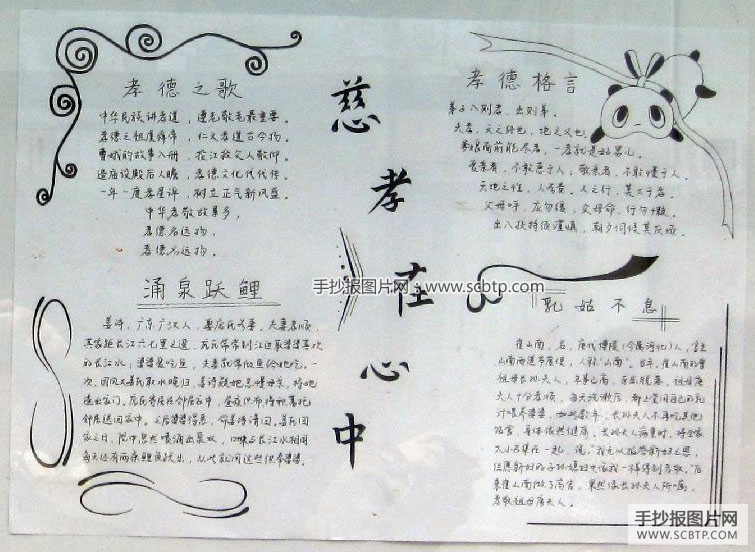 孝德之歌
中华民族讲孝道，遵老敬老最重要。
孝德之祖虞舜帝，仁义孝道古今扬。
曹娥的故事入册，投江救父人敬仰。
造庙设殿后人瞻，孝德文化代代传。
一年一度孝星评，树立正气新风盛。
中华孝敬故事多，
孝德名远扬。
孝德名远扬。
涌泉跃鲤
姜诗，广东广汉人，娶庞氏为妻，夫妻孝顺，
其家距长江六七里之遥，庞氏常常到江边取婆婆喜欢
的长江水；婆婆爱吃鱼，夫妻就常做鱼给她吃。一
次，因风大庞氏取水晚归，姜诗疑她怠慢母亲，将她
逐出家门。庞氏寄居在邻居家中，昼夜纺布将积蓄托
邻居送回家中。之后婆婆得悉，命姜诗请回。庞氏回
家之日，院中忽然喷涌出泉水，口味与长江水相同
每天还有两条鲤鱼跃出，从此就用这些供奉婆婆。
慈孝在心中
孝德格言
弟子入则孝，出则弟。
夫孝，天之经也，地之义也。
爱亲者，不敢恶于人，敬亲者，不敢慢于人。
天地之性，人为贵，人之行，莫大于孝。
父母呼，应勿缓，父母命，行勿懒。
乳姑不怠
崔山南，名，唐代博陵（今属河北）人，官至
山南西道节度使，人称"山南"。当年，崔山南的曾
祖母长孙夫人，年事已高，牙齿脱落，祖母唐
夫人十分孝顺，每天洗漱后，都上堂用自己的乳
汁喂养婆婆，如此数年，长孙夫人不再吃其他
饭食，身体依然健康。长孙夫人病重时，将全家
大小召集在一起，说："我无以报答新妇之恩，
但愿新妇的子孙媳妇也像她一样孝敬。"后
来崔山南做了高官，果然像长孙夫人所嘱，
孝敬祖母唐夫人。
手抄报图片网 www.scbtp.com
手抄报图片网
SCBTP.COM